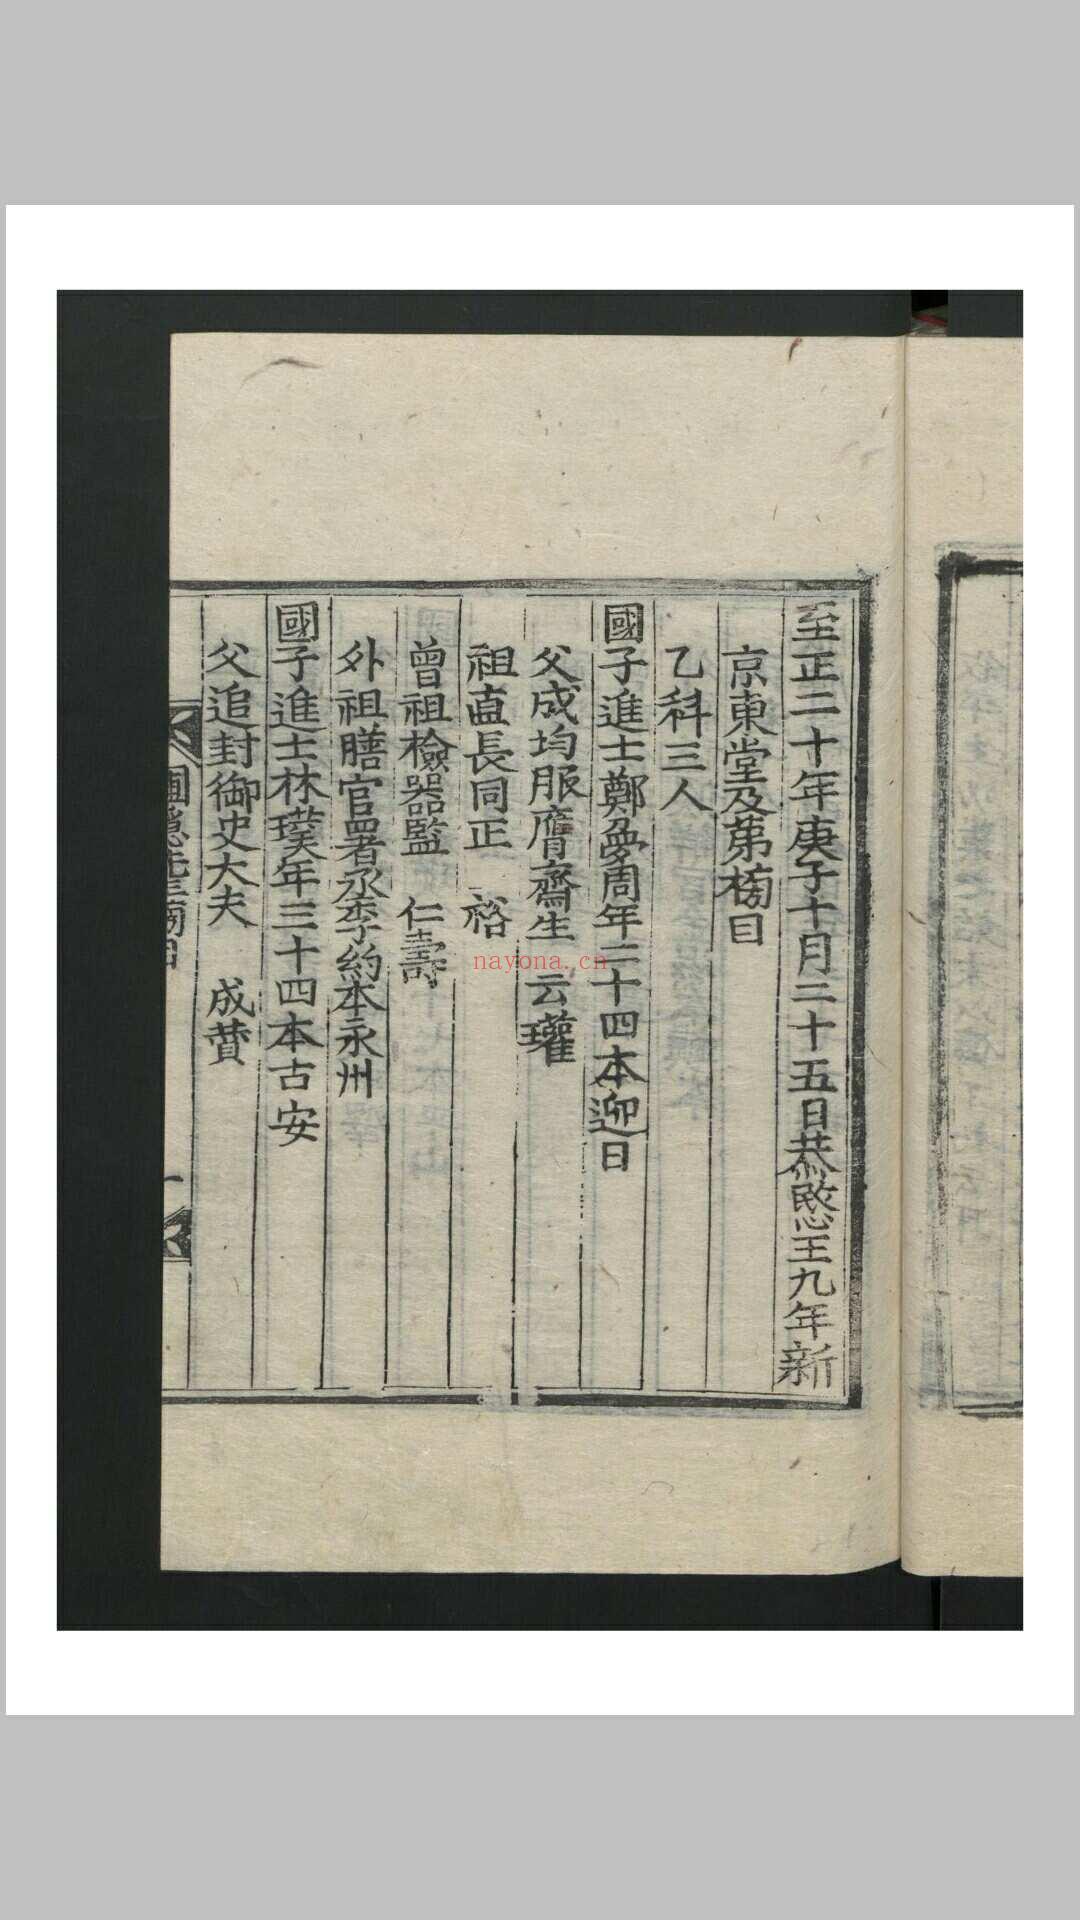 至正二十年庚子十月二十五日恭愍王九年新
京東堂及第榜目
乙科三人
國子進士鄭夢周年二十四本迎日
父成均服膺齋生 云瓘
祖直長同正 裕
曾祖檢器監 仁壽
外祖膳官署丞李約本永州
國子進士林璞年三十四本古安
父追封御史大夫 成贊
圃隱先生榜目
一
nayona.cn